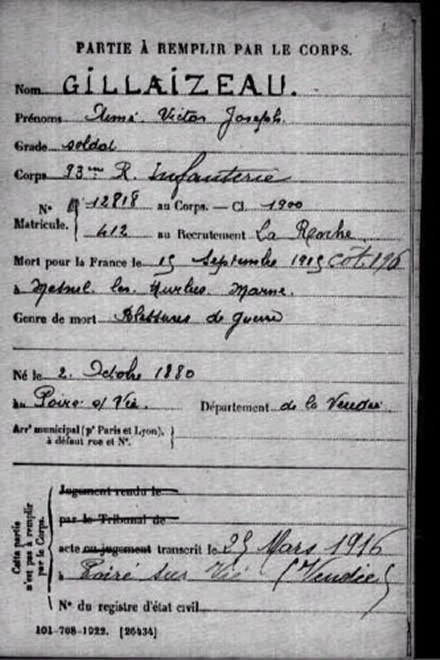 PARTIE À REMPLIR PAR LE CORPS.
Nom GILLAIZEAU.
Prénoms Aimé Victor Joseph.
Grade soldat
Corps 93me R. Infanterie
N° Matricule. 12818 au Corps. — Cl. 1900
412 au Recrutement La Roche
Mort pour la France le 15 Septembre 1915 Cot. 196
à Mesnil les Hurlus Marne.
Genre de mort Blessures de guerre
Né le 2 Octobre 1880
au Poiré s/ Vie. Département de la Vendée
Arrt municipal (pr Paris et Lyon),
à défaut rue et N°.
Cette partie n'est pas à remplir par le Corps.
Jugement rendu le
par le Tribunal de
acte ou jugement transcrit le 25 Mars 1916
à Poiré sur Vie (Vendée)
N° du registre d'état civil
101-708-1922. [26434]